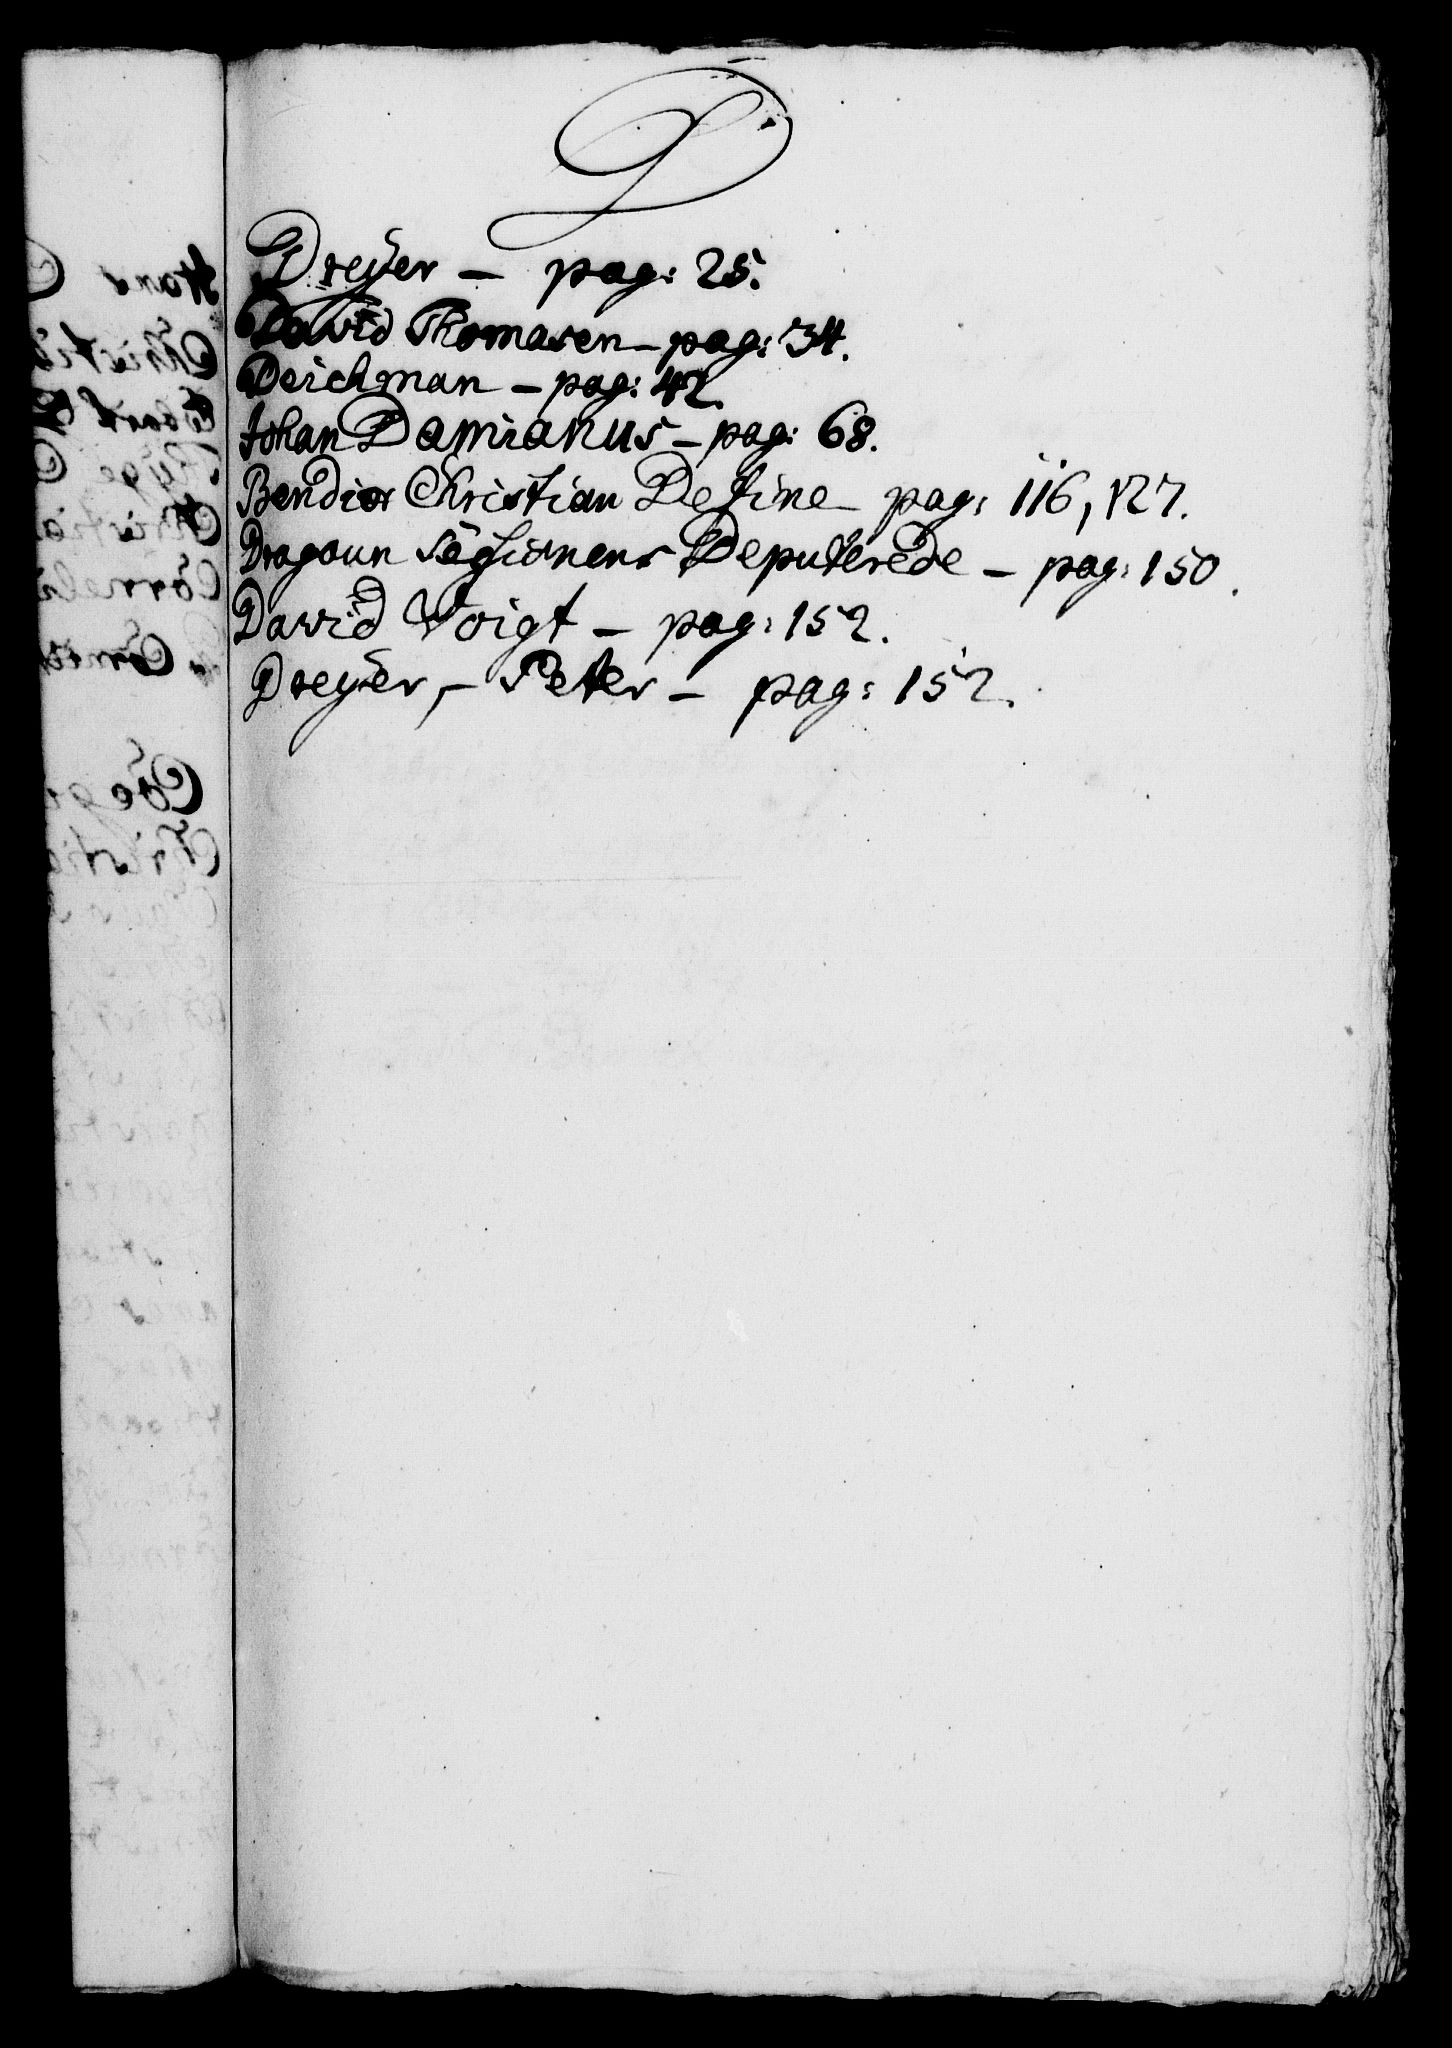 D
Dreÿer – pag: 25.
David Thomasen – pag: 34.
Deichman – pag: 42.
Johan Damianus – pag: 68.
Bendix Christian De fine – pag: 116, 127.
Dragoun Legionens Deputerede – pag: 150.
David Voigt – pag: 152.
Dreÿer, – Peter – pag: 152.